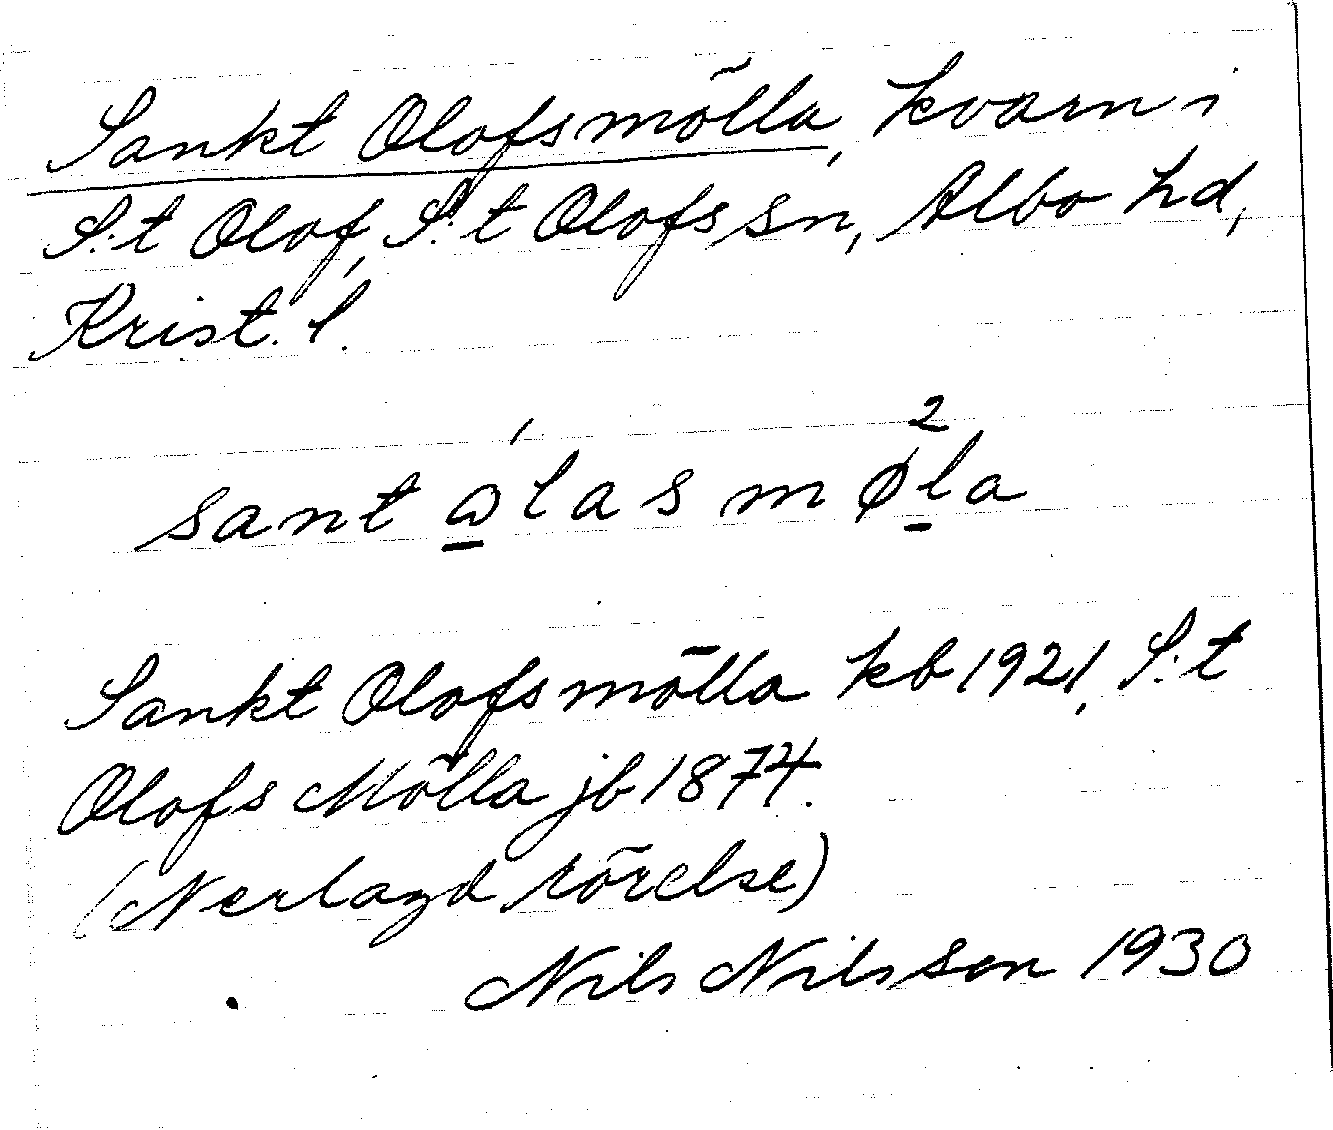 Sankt Olofsmölla, kvarn i
S:t Olof, S:t Olofs sn, Albo hd,
Krist. l.
sant ώ̲lasmø²l̲a
Sankt Olofsmölla kb 1921, S:t
Olofs Mölla jb 1874.
(Nerlagd rörelse)
Nils Nilsson 1930